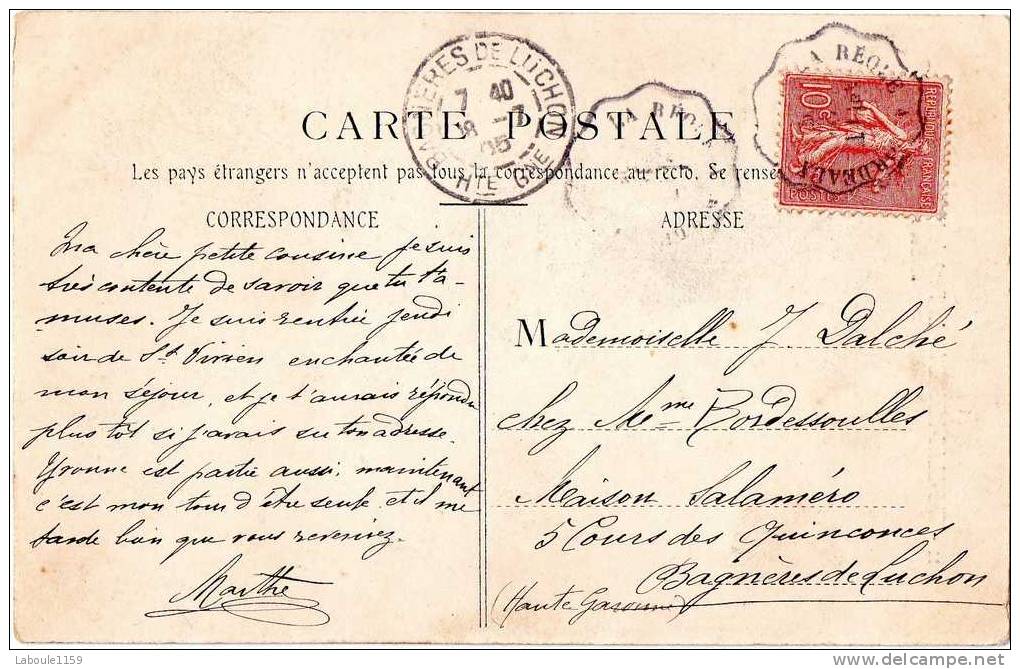 CARTE POSTALE
Les pays étrangers n'acceptent pas tous la correspondance au recto. Se rense
CORRESPONDANCE
Ma chère petite cousine je suis
très contente de savoir que tu t'a-
muses. Je suis rentrée jeudi
soir de St Vivien enchantée de
mon séjour, et je t'aurais répondu
plus tôt si j'avais su ton adresse.
Yvonne est partie aussi, maintenant
c'est mon tour d'être seule et il me
tarde bien que vous reveniez.
Marthe
ADRESSE
Mademoiselle J. Dalché
chez Mme Bordessoulles
Maison Salaméro
5 Cours des Quinconces
Bagnères de Luchon
(Haute Garonne)
BAGNÈRES DE LUCHON
7 40
18 -7
05
HTE GNE
LA RÉOLE
LA RÉOLE
BORDEAUX
10c
RÉPUBLIQUE FRANÇAISE
POSTES
Laboule1159
delcampe.net